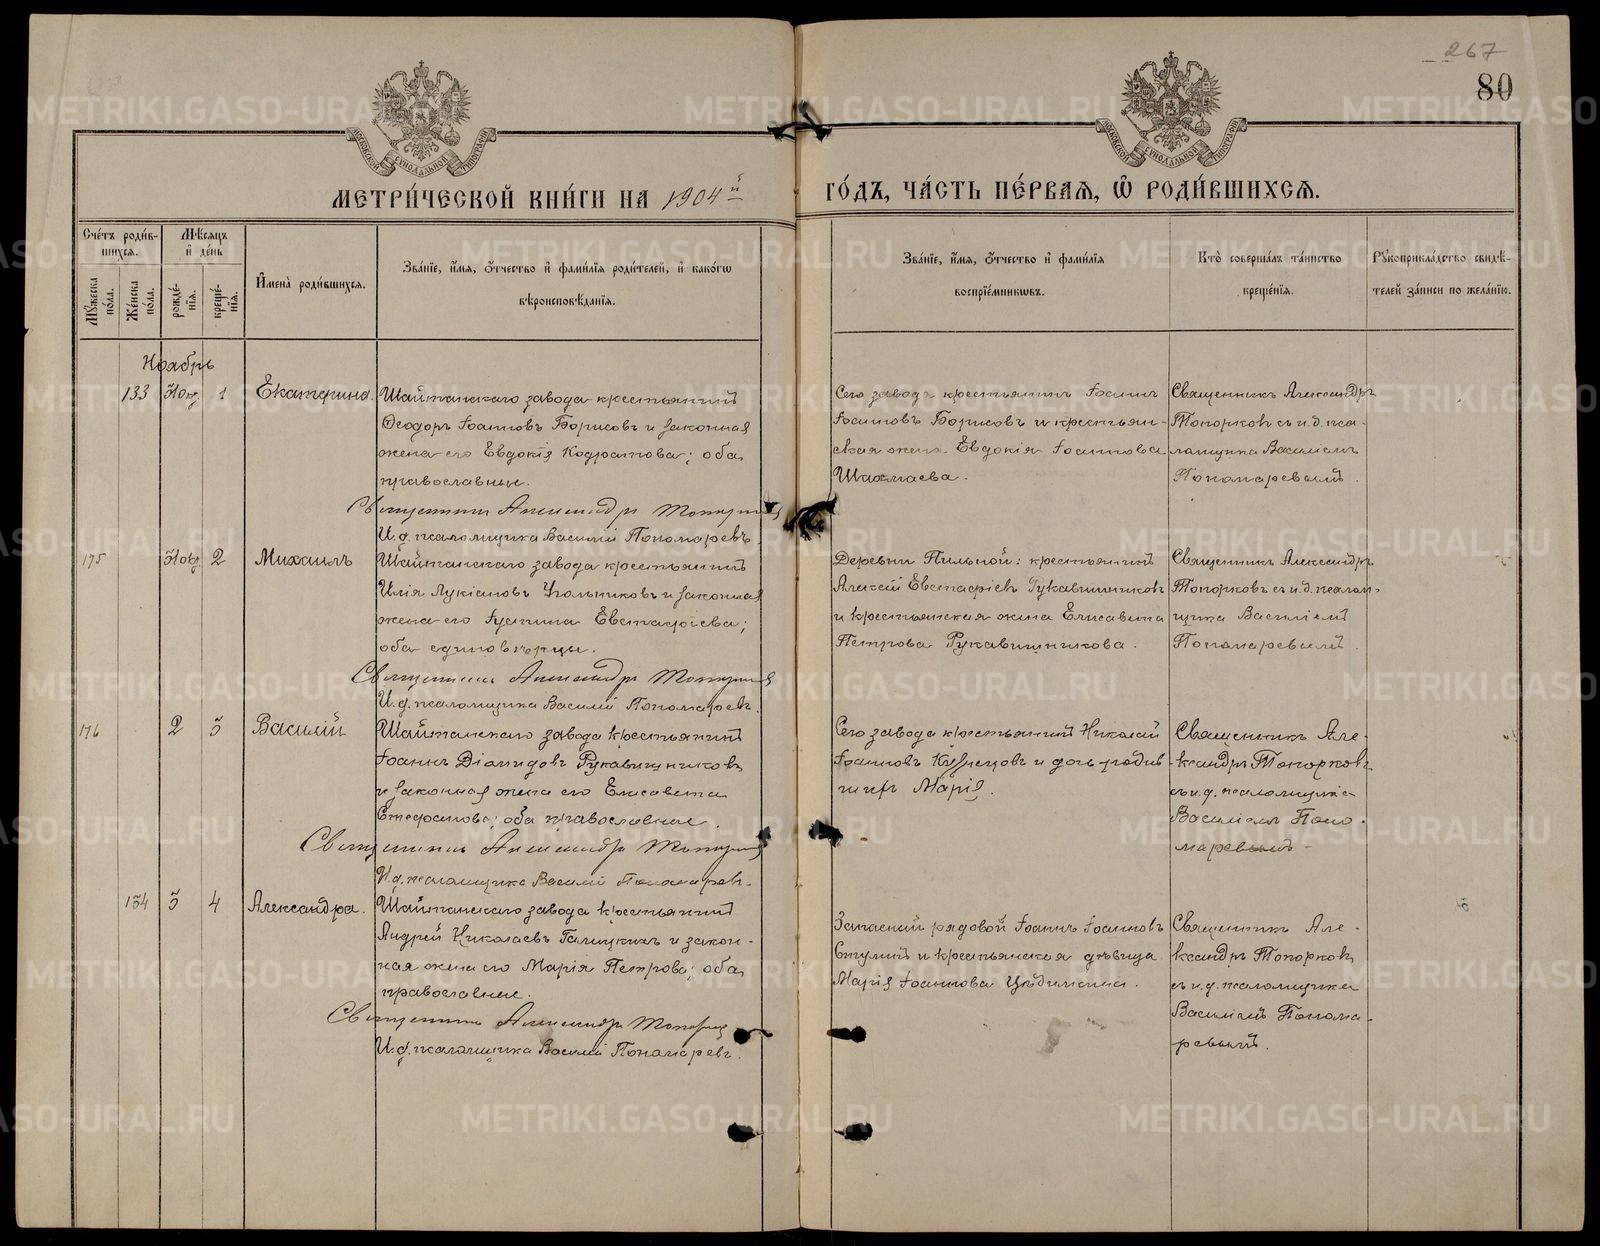 267
80
МЕТРИ́ЧЕСКОЙ КНИ́ГИ НА 1904й
ГО́ДЪ, ЧА́СТЬ ПЕ́РВАѦ, Ѡ҆ РОДИ́ВШИХСѦ.
Сче́тъ роди́в-
шихсѧ.
Мѣ́сѧцъ
и҆ де́нь
Мꙋ́жеска
по́ла.
Же́нска
по́ла.
рожде́-
нїѧ.
креще́-
нїѧ.
И҆мена̀ роди́вшихсѧ.
Зва́нїе, и҆́мѧ, ѻ҆́тчество и҆ фами́лїѧ роди́телей, и҆ како́гѡ
вѣроисповѣ́данїѧ.
Зва́нїе, и҆́мѧ, ѻ҆́тчество и҆ фами́лїѧ
воспрїе́мникѡвъ.
Кто̀ соверша́лъ та́инство
креще́нїѧ.
Рꙋкоприкла́дство свидѣ́-
телей за́писи по жела́нїю.
Ноябрь
133
1
Екатерина.
Шайтанскаго завода крестьянинъ
Ѳеодоръ Іоанновъ Борисовъ и законная
жена его Евдокія Кодратова; оба
православные.
Священникъ Александръ Топорковъ
И.д. псаломщика Василій Пономаревъ.
Сего завода крестьянинъ Іоаннъ
Іоанновъ Борисовъ и крестьян-
ская жена Евдокія Іоаннова
Шахмаева.
Священникъ Александръ
Топорковъ съ и.д. пса-
ломщика Василіемъ
Пономаревымъ.
175
2
Михаилъ
Шайтанскаго завода крестьянинъ
Илія Лукіановъ Угольниковъ и законная
жена его Іустина Евстафіева;
оба единовѣрцы.
Священникъ Александръ Топорковъ
И.д. псаломщика Василій Пономаревъ.
Деревни Пильной: крестьянинъ
Алексѣй Евстафіевъ Рукавишниковъ
и крестьянская жена Елисавета
Петрова Рукавишникова.
Священникъ Александръ
Топорковъ съ и.д. псалом-
щика Василіемъ
Пономаревымъ.
176
2
3
Василій
Шайтанскаго завода крестьянинъ
Іоаннъ Діомидовъ Рукавишниковъ
и законная жена его Елисавета
Стефанова; оба православные.
Священникъ Александръ Топорковъ
И.д. псаломщика Василій Пономаревъ.
Сего завода крестьянинъ Николай
Іоанновъ Кузнецовъ и дочь родив-
шихъ Марія.
Священникъ Але-
ксандръ Топорковъ
съ и.д. псаломщика
Василіемъ Поно-
маревымъ.
134
3
4
Александра.
Шайтанскаго завода крестьянинъ
Андрей Николаевъ Галицкихъ и закон-
ная жена его Марія Петрова; оба
православные.
Священникъ Александръ Топорковъ
И.д. псаломщика Василій Пономаревъ.
Запасный рядовой Іоаннъ Іоанновъ
и крестьянская дѣвица
Марія Іоаннова
Священникъ Але-
ксандръ Топорковъ
съ и.д. псаломщика
Василіемъ Понома-
ревымъ.
METRIKI.GASO-URAL.RU